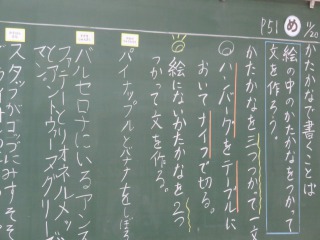 11/20
め P51
かたかなで書くことば
絵の中のかたかなをつかって
文を作ろう。
かたかなを三つつかって一文
ハンバーグをテーブルに
おいてナイフで切る。
絵にないかたかなを2つ
つかって文を作る。
パイナップルとバナナをしぼる
バルセロナにいるアンス
ファティーとリオネルメ
とアントワーヌグリーズ
スタッガ